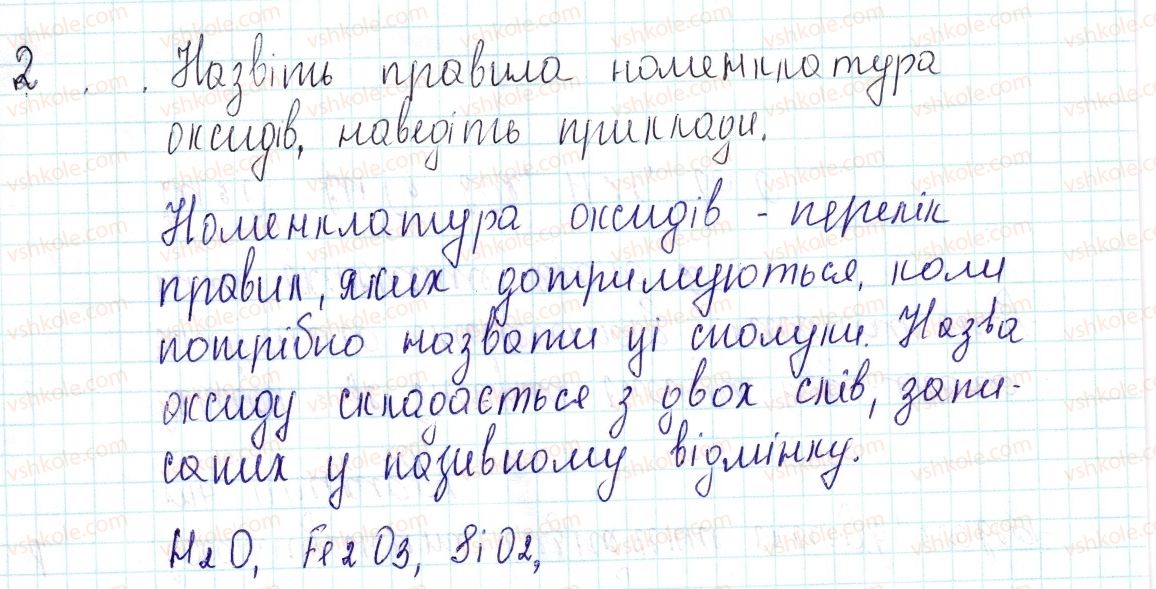 2. . Назвіть правила номенклатура
оксидів, наведіть приклади.
Номенклатура оксидів - перелік
правил, яких дотримуються, коли
потрібно назвати ці сполуки. Назва
оксиду складається з двох слів, запи-
саних у називному відмінку.
H2O, Fe2O3, SiO2,